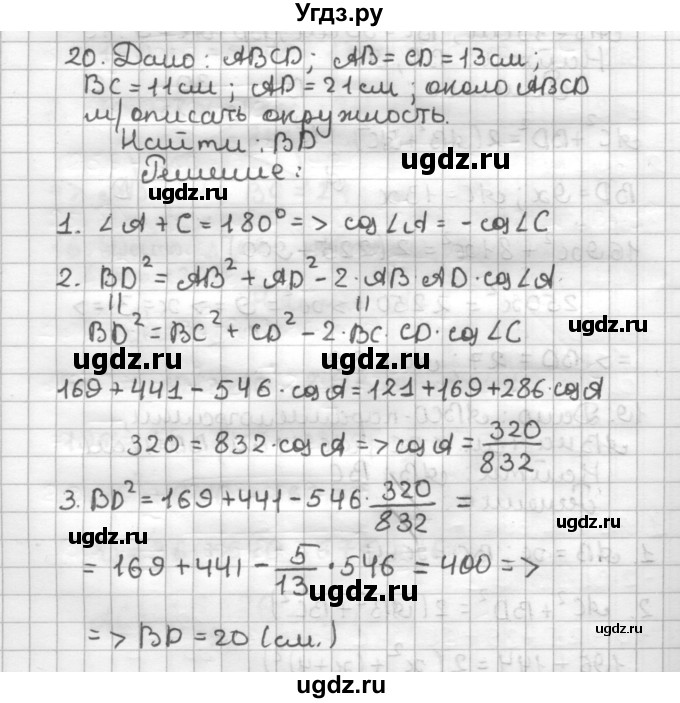 Угдз.ру
20. Дано: ABCD; AB = CD = 13 см;
BC = 11 см; AD = 21 см; около ABCD
м/описать окружность.
Найти: BD
ugdz.ru
Решение:
ugdz.ru
1. ∠A + C = 180° => cos∠A = -cos∠C
ugdz.ru
2. BD² = AB² + AD² - 2·AB·AD·cos∠A
|| ||
BD² = BC² + CD² - 2·BC·CD·cos∠C
ugdz.ru
ugdz.ru
ugdz.ru
169 + 441 - 546·cosA = 121 + 169 + 286·cosA
320 = 832·cosA => cosA = 320/832
3. BD² = 169 + 441 - 546·320/832 =
ugdz.ru
ugdz.ru
= 169 + 441 - 5/13·546 = 400 =>
ugdz.ru
=> BD = 20 (см.)
ugdz.ru
ugdz.ru